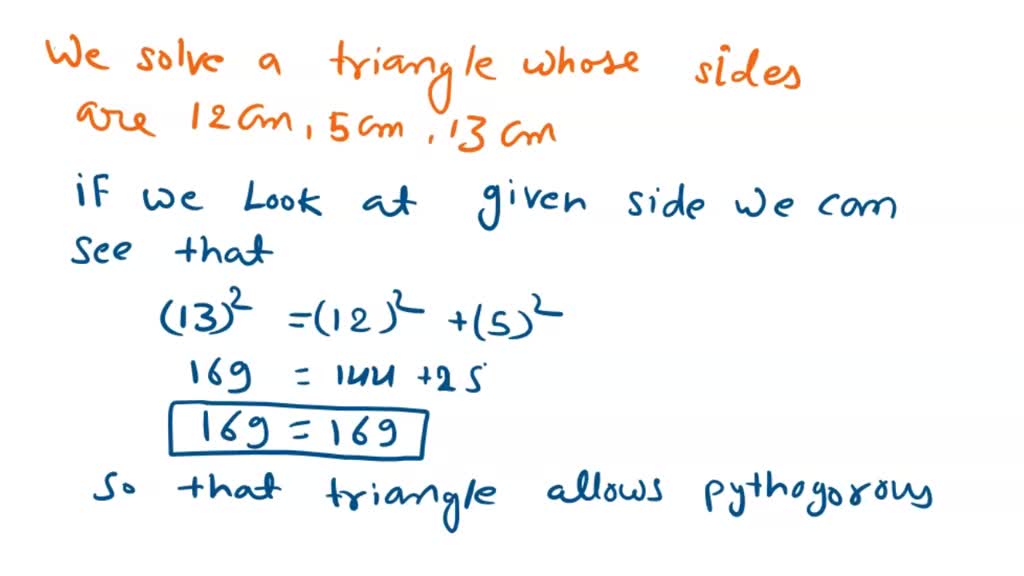 We solve a triangle whose sides
are 12cm, 5cm, 13cm
if we Look at given side we can
see that
(13)² = (12)² + (5)²
169 = 144 + 25
169 = 169
so that triangle allows pythogorous